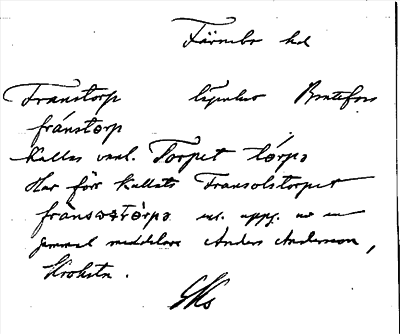 Färnebo hd
Franstorp lägenhet Brattfors
fránstɔrp
Kallas vanl. Torpet tórpə
Har förr kallats Fransolstorpet
enl. uppg. av en
gammal meddelare Anders Andersson,